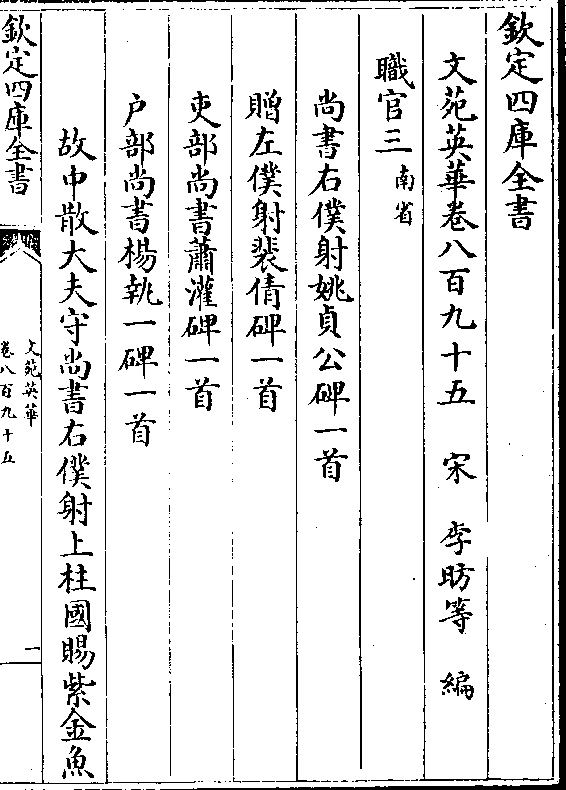 欽定四庫全書
文苑英華卷八百九十五　宋　李昉等　編
職官三 南省
尚書右僕射姚貞公碑一首
贈左僕射裴倩碑一首
吏部尚書蕭灌碑一首
戶部尚書楊執一碑一首
故中散大夫守尚書右僕射上柱國賜紫金魚
欽定四庫全書
文苑英華
卷八百九十五
一